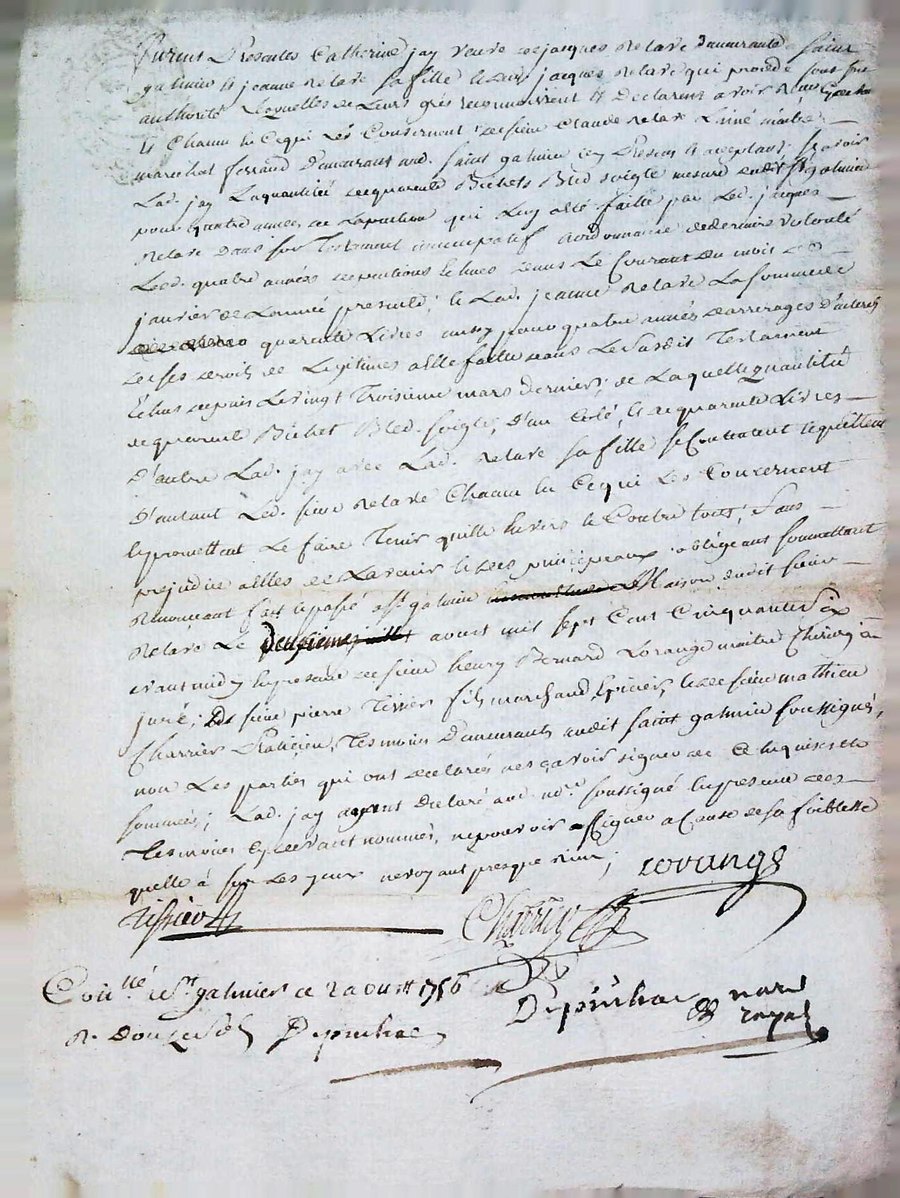 furent presentes Catherine jay veuve de jacques relave demeurante a saint
galmier et jeanne relave sa fille et dud jacques relave qui procede sous son
authorité Lesquelles de Leurs grés reconnoissent et Declarent avoir Reçu
et Chacun en Cequi Les Concernent de sieur Claude relave L'ainé maitre
marechal ferrand Demeurant aud. saint galmier icy Present et acceptant sçavoir
Lad. jay Laquantité dequarante Bichets Bled seigle mesure dudit st galmier
pour quatre années de La pention qui Luy a été faitte par Led. jacques
relave dans son Testament nuncupatif et ordonnance de derniere volonté
Lesd. quatre années de pentions echues dans Le Courant du mois de
janvier de L'année presente, et Lad. jeanne relave La somme de
quarante Livres aussy pour quatre années d'arrerages d'interets
de ses droits de Legitimes a elle faitte dans Le susdit Testament
Echus depuis Le vingt Troisieme mars dernier; de Laquelle quantité
de quarante Bichet Bled seigle, D'un Coté, et de quarante Livres
D'autre Lad. jay avec Lad. relave sa fille se Contentent et quittent
D'autant Led. sieur relave Chacun en Cequi Les Concernent
et promettent Le faire Tenir quitte envers et Contre tous, sans
prejudice a elles de L'avenir et des principeaux obligeant soumettant
Renonçant fait et passé a st galmier Maison dudit sieur
relave Le Deuxieme aoust mil sept Cent Cinquante six
avant midy en presence de sieur henry Bernard Lorange maitre Chirurgien
juré, sieur pierre Tissier fils marchand Epicier, et de sieur mathieu
Charrier Praticien, Tesmoins Demeurants audit saint galmier soussignés,
non Les parties qui ont declarés ne sçavoir signer de Ce enquises et
sommées; Lad. jay ayant Declaré aud. nore. soussigné en presence des
Tesmoins cy devant nommés, ne pouvoir signer a Cause de sa foiblesse
qu'elle à sur Les yeux ne voyant presque rien;
Lorange
Tissier
Charrier
Conllé a st galmier ce 2 aoust 1756
R. Douze sols Depinhac
Depinhac nore
royal